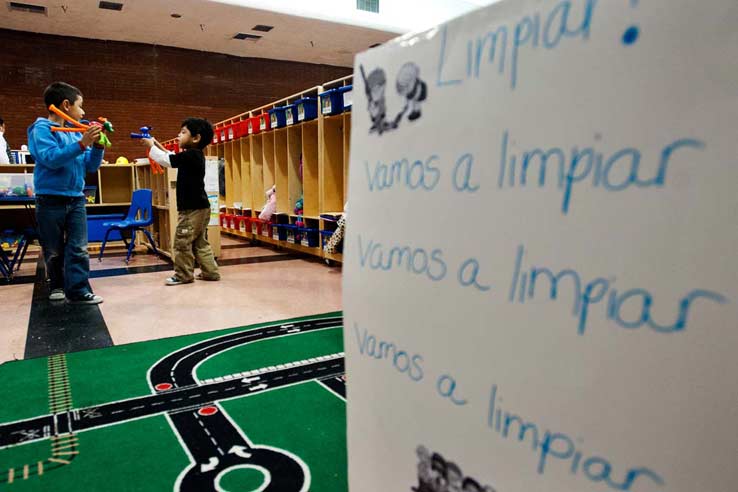 Limpiar!
vamos a limpiar
vamos a limpiar
vamos a limpiar